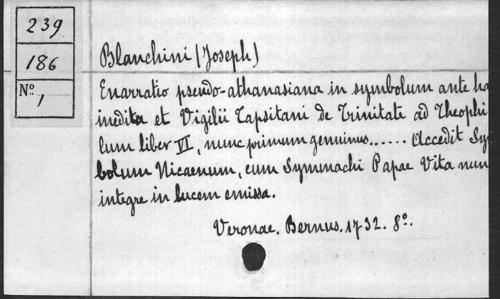 239
186
Nº 1
Blanchini (Joseph)
Enarratio pseudo-athanasiana in symbolum ante ha
inedita et Vigilii Tapsitani de Trinitate ad Theophi
lum liber VI, nunc primum genuinus...... Accedit Sy
bolum Nicaenum, cum Symmachi Papae Vita nun
integre in lucem emissa.
Veronae. Bernus. 1732. 8º.